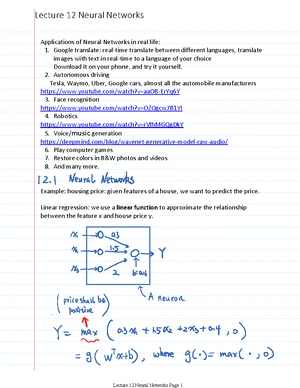 Lecture 12 Neural Networks
Applications of Neural Networks in real life:
1. Google translate: real-time translate between different languages, translate
images with text in real-time to a language of your choice
Download it on your phone, and try it yourself.
2. Autonomous driving
Tesla, Waymo, Uber, Google cars, almost all the automobile manufacturers
https://www.youtube.com/watch?v=aaOB-ErYq6Y
3. Face recognition
https://www.youtube.com/watch?v=
4. Robotics
https://www.youtube.com/watch?v=rVlhMGQgDkY
5. Voice/music generation
https://deepmind.com/blog/wavenet-generative-model-raw-audio/
6. Play computer games
7. Restore colors in B&W photos and videos
8. And many more.
12.1 Neural Networks
Example: housing price: given features of a house, we want to predict the price.
Linear regression: we use a linear function to approximate the relationship
between the feature x and house price y.
x₁ 0.3
x₂ 1.5 Y
x₃ 2
A neuron
(price shall be
positive)
Y = max (0.3x₁ + 1.5x₂ + 2x₃ + 0.4, 0)
= g(wᵀx+b), where g(·) = max(·, 0)
Lecture 12 Neural Networks Page 1